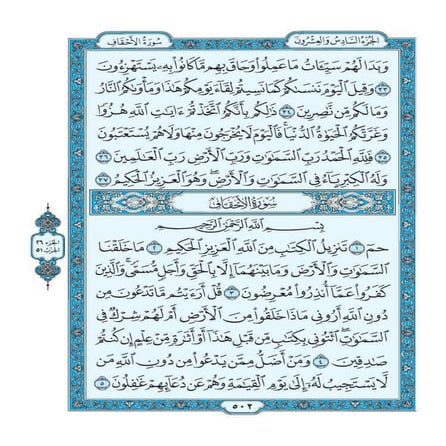 سورة الأحقاف
الجزء السادس والعشرون
وبدا لهم سيئات ما عملوا وحاق بهم ما كانوا به يستهزءون
٣٣ وقيل اليوم ننسىكم كما نسيتم لقاء يومكم هذا ومأوىكم النار
وما لكم من نصرين ٣٤ ذلكم بأنكم اتخذتم ءايت الله هزوا
وغرتكم الحيوة الدنيا فاليوم لا يخرجون منها ولا هم يستعتبون
٣٥ فلله الحمد رب السموت ورب الأرض رب العلمين ٣٦
وله الكبرياء في السموت والأرض وهو العزيز الحكيم ٣٧
سورة الأحقاف
بسم الله الرحمن الرحيم
حم ١ تنزيل الكتب من الله العزيز الحكيم ٢ ما خلقنا
السموت والأرض وما بينهما إلا بالحق وأجل مسمى والذين
كفروا عما أنذروا معرضون ٣ قل أرءيتم ما تدعون من
دون الله أروني ماذا خلقوا من الأرض أم لهم شرك في
السموت ائتوني بكتب من قبل هذا أو أثرة من علم إن كنتم
صدقين ٤ ومن أضل ممن يدعوا من دون الله من
لا يستجيب له إلى يوم القيمة وهم عن دعائهم غفلون ٥
٥٠٢